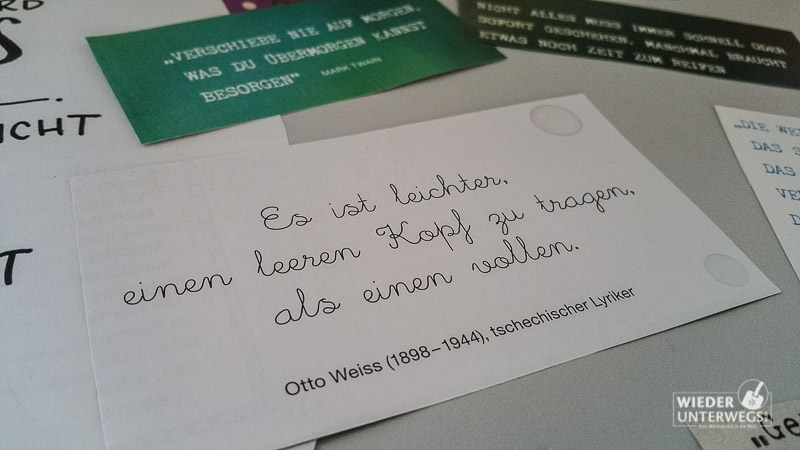 „VERSCHIEBE NIE AUF MORGEN,
WAS DU ÜBERMORGEN KANNST
BESORGEN“ MARK TWAIN
NICHT ALLES MUSS IMMER SCHNELL ODER
SOFORT GESCHEHEN. MANCHMAL BRAUCHT
ETWAS NOCH ZEIT ZUM REIFEN
Es ist leichter,
einen leeren Kopf zu tragen,
als einen vollen.
Otto Weiss (1898–1944), tschechischer Lyriker
„DIE
DAS
DAS
WIEDER
UNTERWEGS!